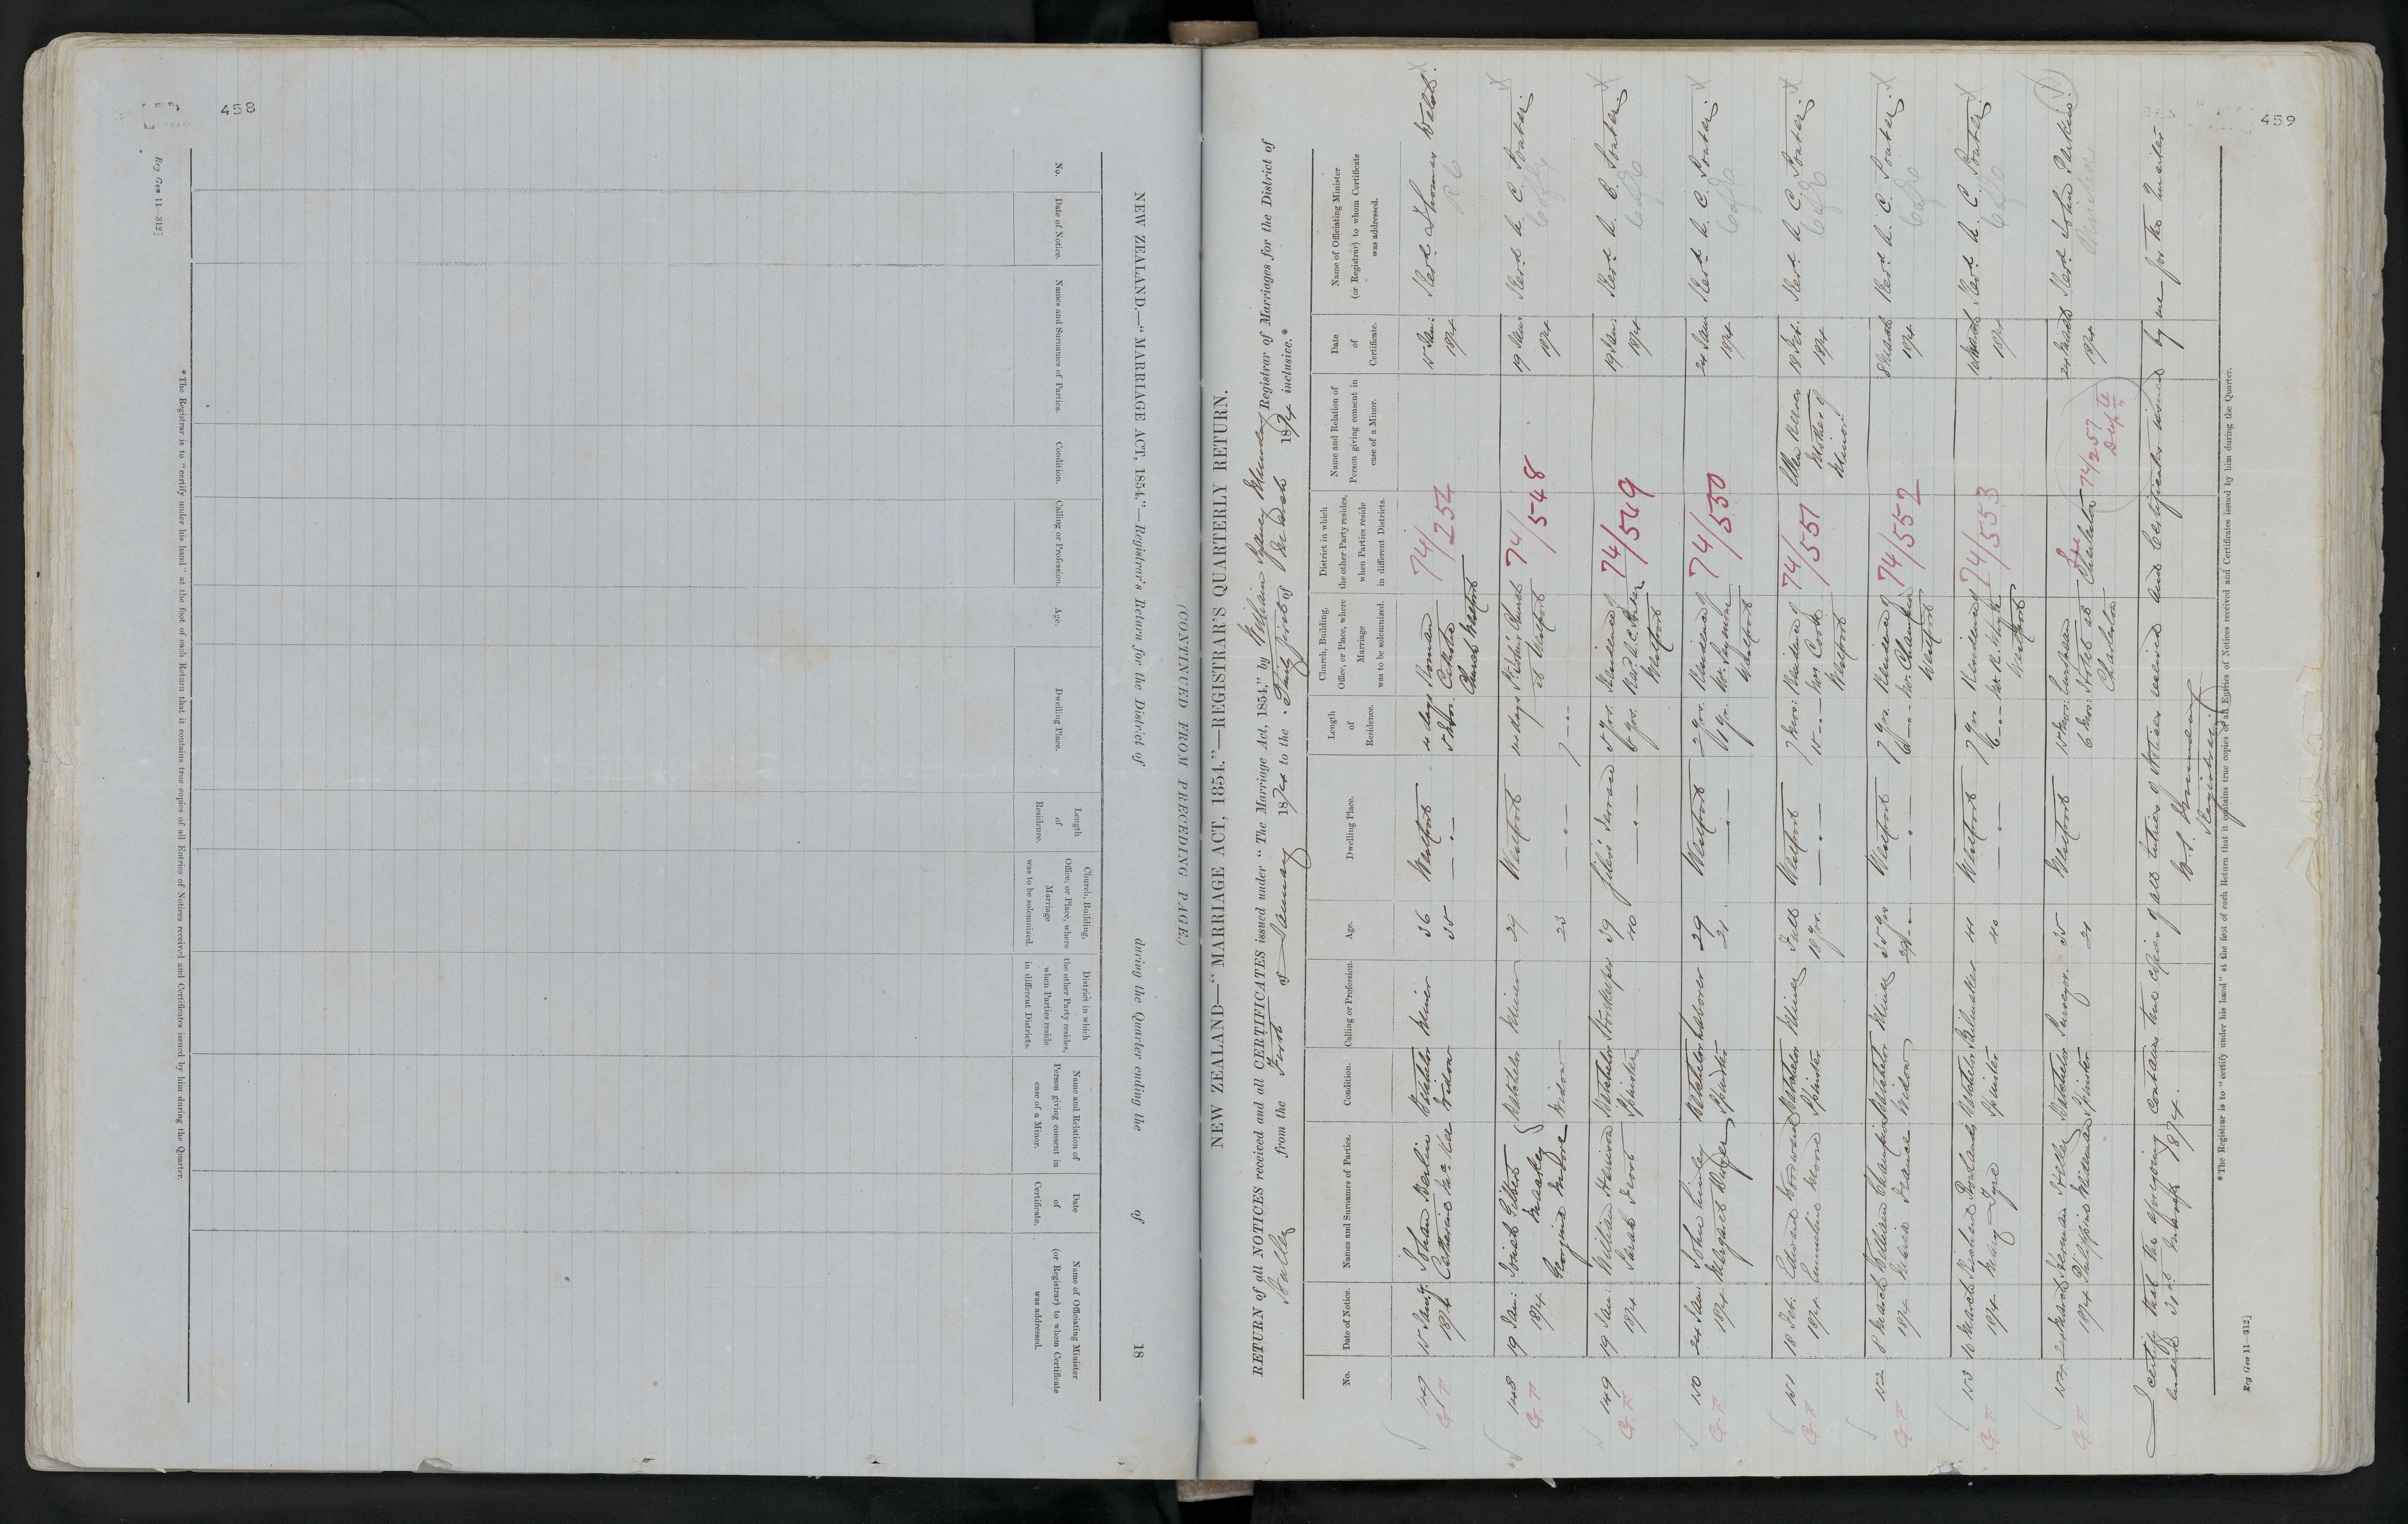 458
NEW ZEALAND.—"MARRIAGE ACT, 1854."—Registrar's Return for the District of during the Quarter ending the of 18
No.
Date of Notice.
Names and Surnames of Parties.
Condition.
Calling or Profession.
Age.
Dwelling Place.
Length
of
Residence.
Church, Building,
Office, or Place, where
Marriage
was to be solemnized.
District in which
the other Party resides,
when Parties reside
in different Districts.
Name and Relation of
Person giving consent in
case of a Minor.
Date
of
Certificate.
Name of Officiating Minister
(or Registrar) to whom Certificate
was addressed.
*The Registrar is to "certify under his hand" at the foot of each Return that it contains true copies of all Entries of Notices received and Certificates issued by him during the Quarter.
Reg Gen 11—312]
459
(CONTINUED FROM PRECEDING PAGE.)
NEW ZEALAND—"MARRIAGE ACT, 1854."—REGISTRAR'S QUARTERLY RETURN.
RETURN of all NOTICES received and all CERTIFICATES issued under "The Marriage Act, 1854," by William Sydney Registrar of Marriages for the District of
from the First of January 1874 to the Thirty first of March 1874 inclusive.*
No.
Date of Notice.
Names and Surnames of Parties.
Condition.
Calling or Profession.
Age.
Dwelling Place.
Length
of
Residence.
Church, Building,
Office, or Place, where
Marriage
was to be solemnized.
District in which
the other Party resides,
when Parties reside
in different Districts.
Name and Relation of
Person giving consent in
case of a Minor.
Date
of
Certificate.
Name of Officiating Minister
(or Registrar) to whom Certificate
was addressed.
147 15 Jany. John Bachelor Miner 36 Westport 4 days Roman 74/254 15 Jan: Revd. Thomas Walsh
1874 Catherine McKee Widow 35 Catholic 1874 R C
Church Westport
148 19 Jan: Josiah Gilbert Bachelor Miner 29 Westport St John's Church 74/548 19 Jan: Revd. A. C. Soutar
1874 Maskey at Westport 1874 C of E
Georgina Moore Widow 23
149 19 Jan: William Harrison Bachelor Storekeeper 39 Giles's Terrace 5 yrs. Residence of 74/549 19 Jan: Revd. A. C. Soutar
1874 Sarah Frost Spinster 40 6 yrs. Rev. A. C. Soutar 1874 C of E
Westport
150 24 Jan: John Bachelor Laborer 29 Westport 2 yrs. Residence of 74/550 24 Jan: Revd. A. C. Soutar
1874 Margaret Spinster 21 Westport 1874 C of E
151 18 Feb: Edward Bachelor Miner Full Westport 7 mos: Residence of 74/551 Mother of 18 Feb. Revd. A. C. Soutar
1874 Emmeline Moore Spinster 18 yrs. Mrs Cook Minor 1874 C of E
Westport
152 8 March William Champion Bachelor Miner 35 yrs Westport 7 yrs Residence of 74/552 8 March Revd. A. C. Soutar
1874 Maria Widow 6 Mr. Champion 1874 C of E
Westport
153 10 March Richard Bachelor 41 Westport 7 yrs Residence of 74/553 10 March Revd. A. C. Soutar
1874 Mary Tyre Spinster 40 1874 C of E
Westport
154 24 March Herman Bachelor Surveyor. 35 Westport European 24 March Revd. John Parkin
1874 Philippine Spinster 21 6 mos: Hotel at Charleston 74/257 1874
Charleston
I certify that the foregoing contains true copies of all entries of Notices received and Certificates issued by me for the Quarter
ended 31st March 1874.
W. S.
Registrar
*The Registrar is to "certify under his hand" at the foot of each Return that it contains true copies of all Entries of Notices received and Certificates issued by him during the Quarter.
Reg Gen 11—312]